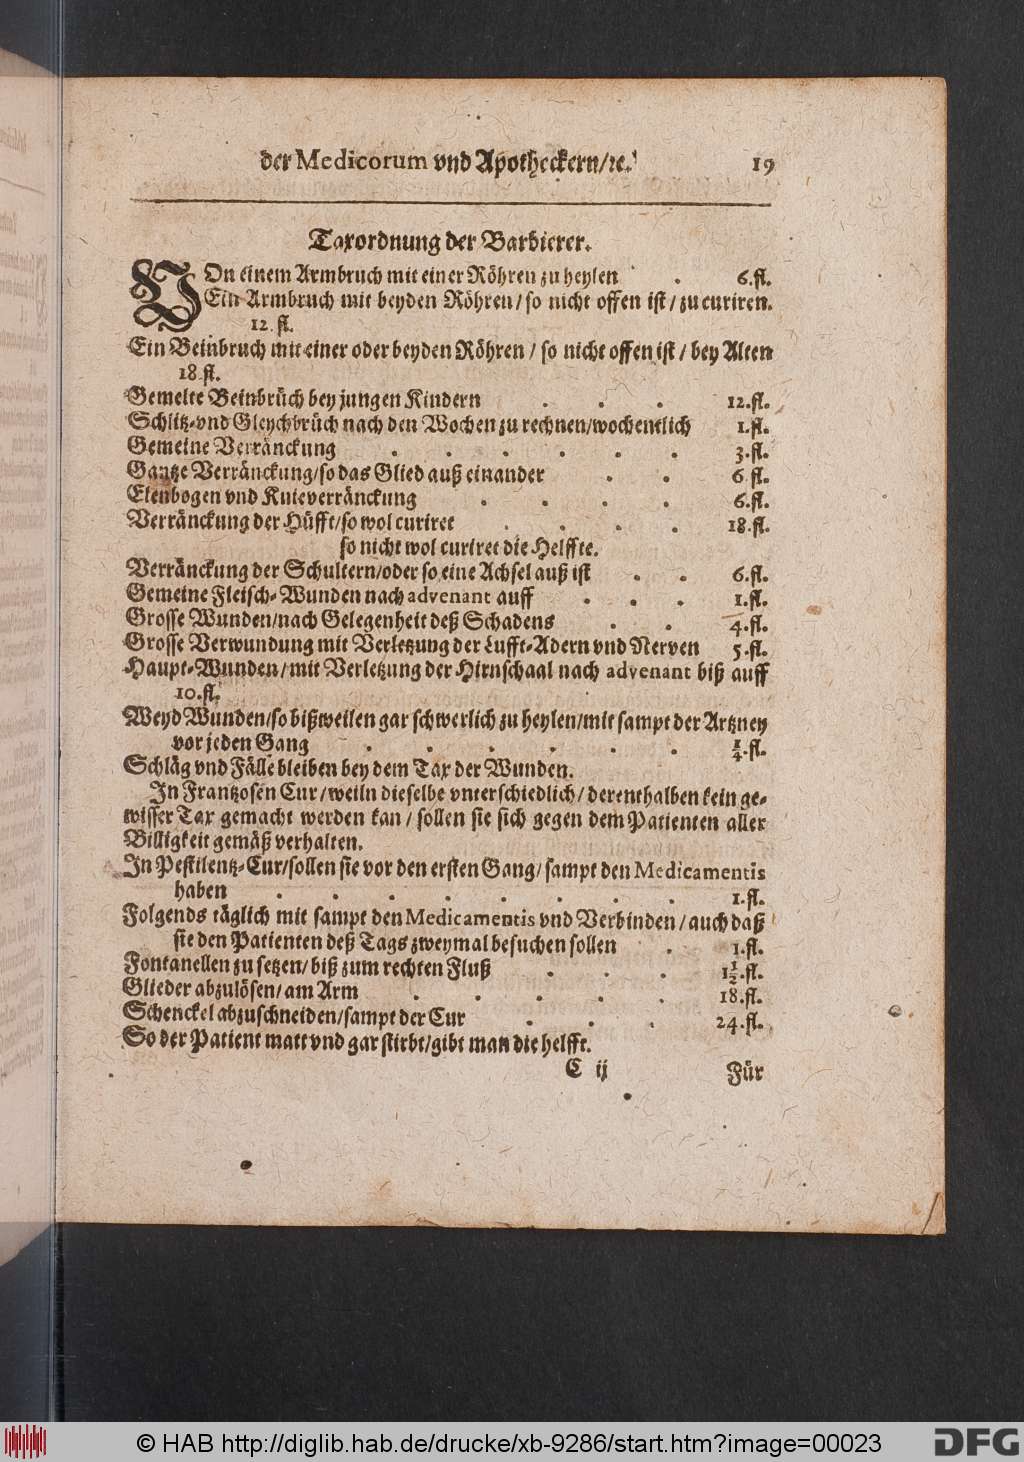 der Medicorum vnd Apotheckern/ꝛc. 19
Taxordnung der Barbierer.
VOn einem Armbruch mit einer Röhren zu heylen . 6.fl.
Ein Armbruch mit beyden Röhren/ so nicht offen ist/ zu curiren.
12. fl.
Ein Beinbruch mit einer oder beyden Röhren / so nicht offen ist / bey Alten
18.fl.
Gemelte Beinbrüch bey jungen Kindern . . . 12.fl.
Schlitz-vnd Gleychbrüch nach den Wochen zu rechnen/wochentlich 1.fl.
Gemeine Verränckung . . . . . . 3.fl.
Gantze Verränckung/so das Glied auß einander . . 6 fl.
Elenbogen vnd Knieverränckung . . . . 6.fl.
Verränckung der Hüfft/so wol curiret . . . . 18.fl.
so nicht wol curiret die Helffte.
Verränckung der Schultern/oder so eine Achsel auß ist . . 6.fl.
Gemeine Fleisch-Wunden nach advenant auff . . . 1.fl.
Grosse Wunden/nach Gelegenheit deß Schadens . . 4.fl.
Grosse Verwundung mit Verletzung der Lufft-Adern vnd Nerven 5.fl.
Haupt-Wunden/mit Verletzung der Hirnschaal nach advenant biß auff
10.fl.
Weyd Wunden/so bißweilen gar schwerlich zu heylen/mit sampt der Artzney
vor jeden Gang . . . . . . ¼.fl.
Schläg vnd Fälle bleiben bey dem Tax der Wunden.
In Frantzosen Cur/weiln dieselbe vnterschiedlich/ derenthalben kein ge-
wisser Tax gemacht werden kan / sollen sie sich gegen dem Patienten aller
Billigkeit gemäß verhalten.
In Pestilentz-Cur/sollen sie vor den ersten Gang/ sampt den Medicamentis
haben . . . . . . . . 1.fl.
Folgends täglich mit sampt den Medicamentis vnd Verbinden / auch daß
sie den Patienten deß Tags zweymal besuchen sollen . 1.fl.
Fontanellen zu setzen/ biß zum rechten Fluß . . . 1½.fl.
Glieder abzulösen/ am Arm . . . . . 18.fl.
Schenckel abzuschneiden/sampt der Cur . . . 24.fl.
So der Patient matt vnd gar stirbt/gibt man die helfft.
C ij Für
© HAB http://diglib.hab.de/drucke/xb-9286/start.htm?image=00023 DFG